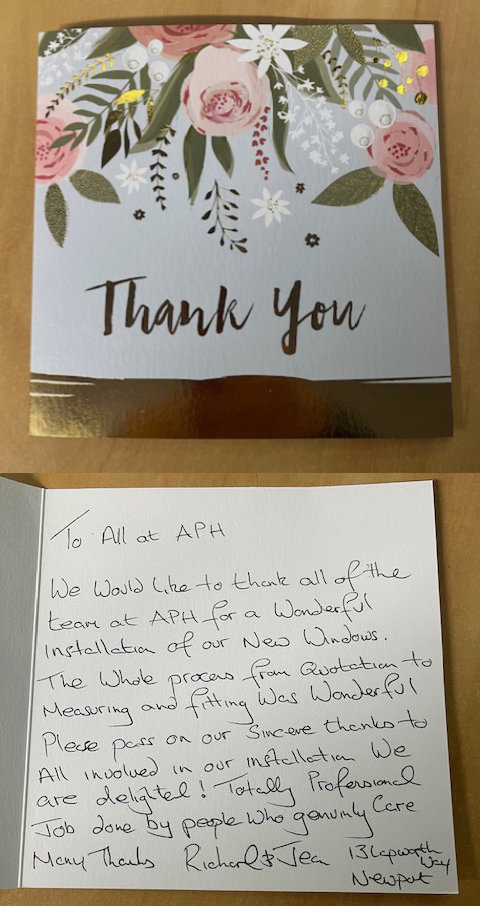 Thank You
To All at APH
We Would Like to thank all of the
team at APH for a Wonderful
Installation of our New Windows.
The Whole process from Quotation to
Measuring and fitting Was Wonderful
Please pass on our Sincere thanks to
All involved in our installation We
are delighted! Totally Professional
Job done by people who genuinly Care
Many Thanks Richard & Jean 13 Lapworth
Way
Newport